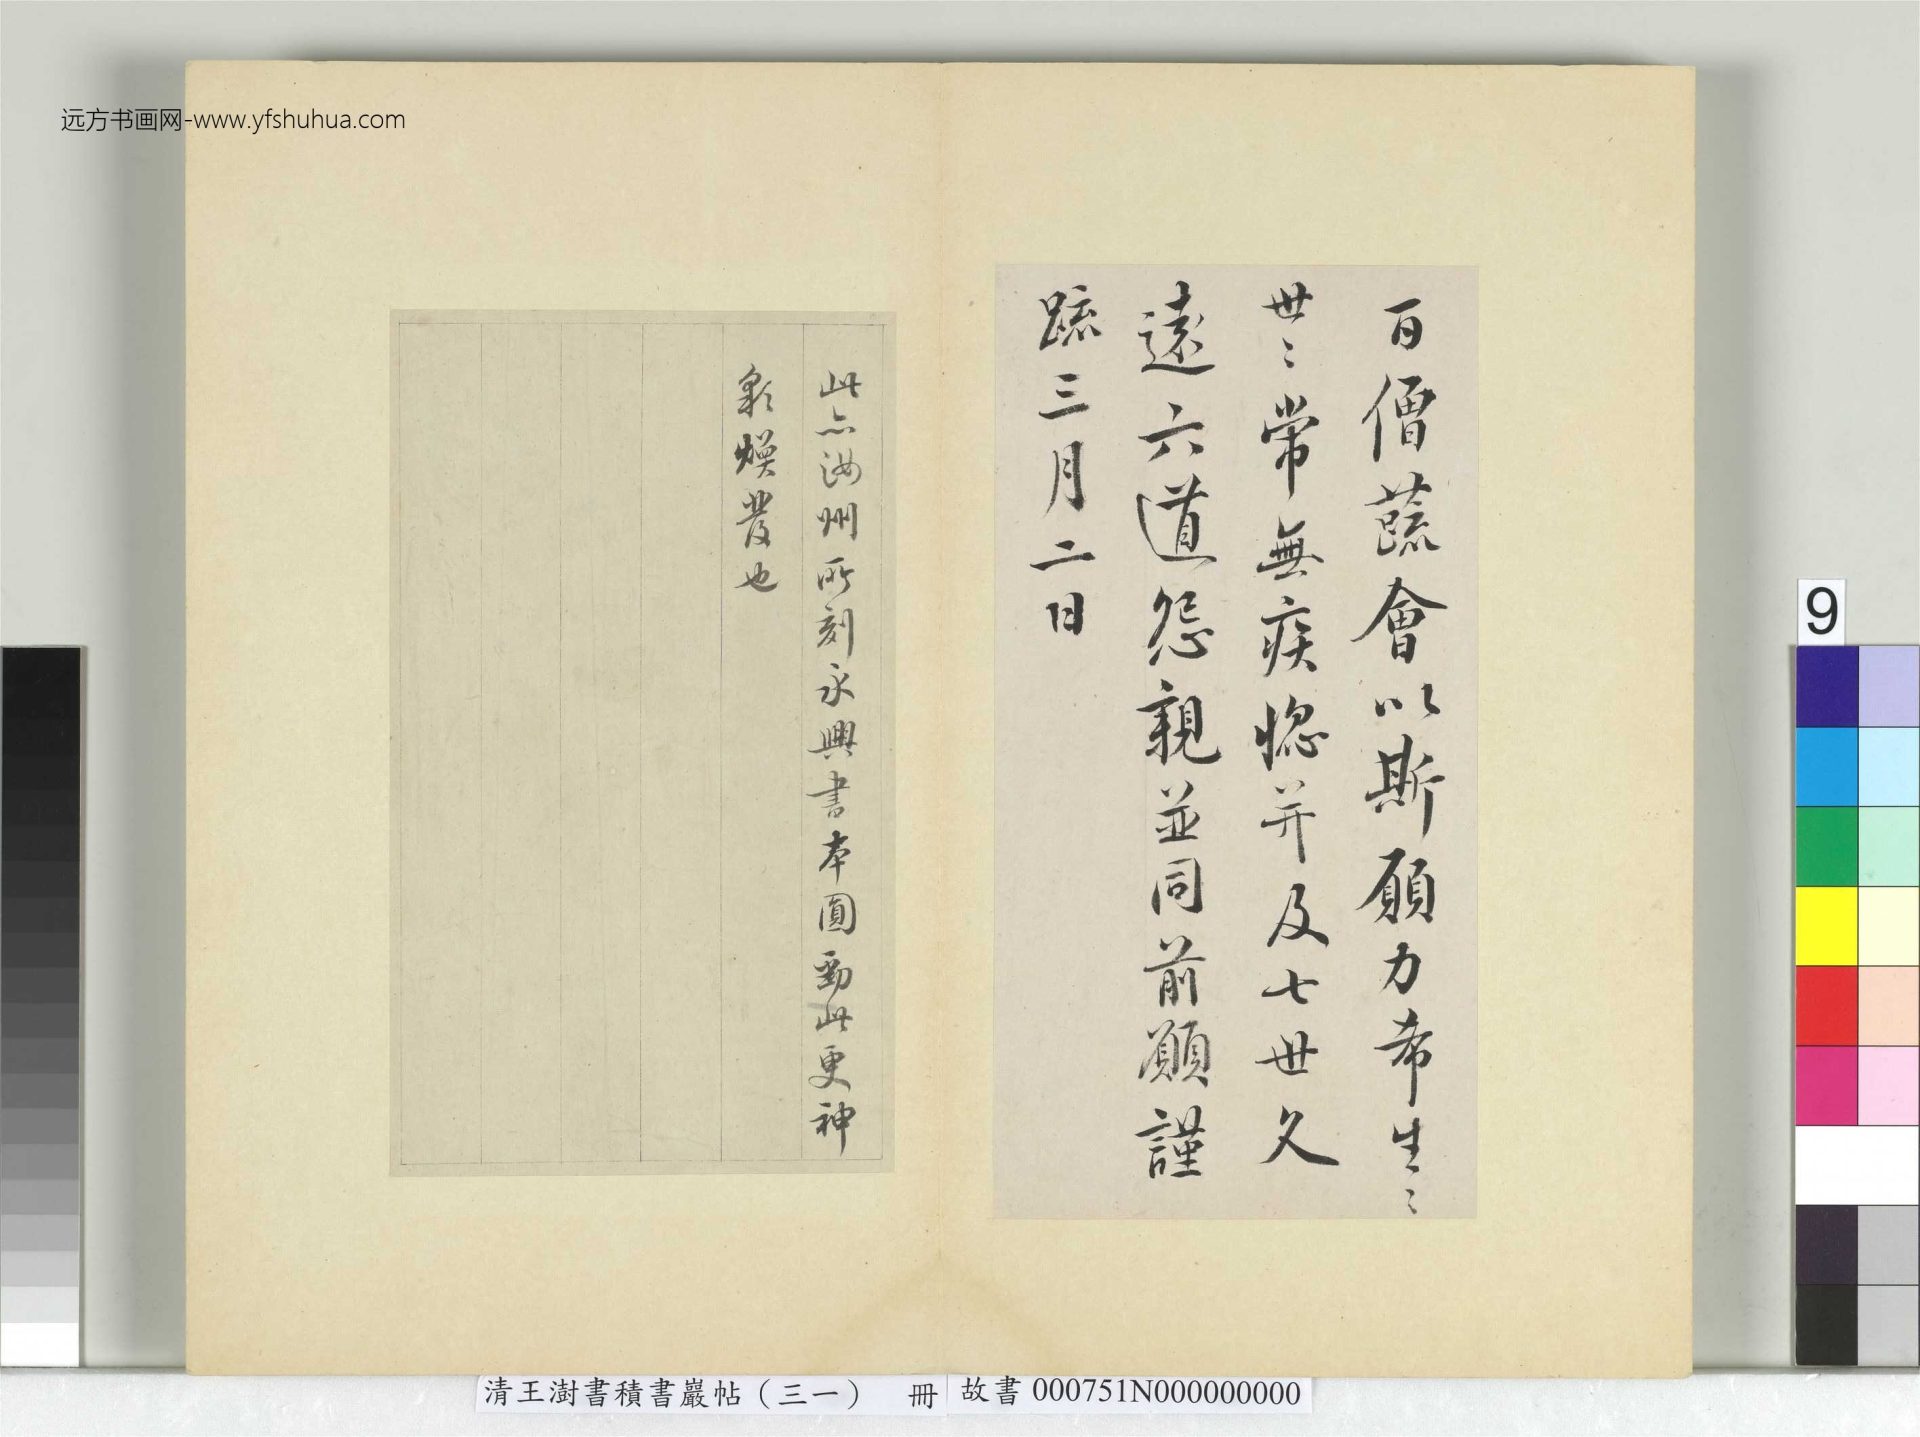 远方书画网-www.yfshuhua.com
百僧蔬會以斯願力希生〻
世〻常無疾惱并及七世久
遠六道怨親並同前願謹
疏三月二日
此亦汝州所刻永興書本圓勁此更神
彩煥發也
9
清王澍書積書巖帖（三一） 冊
故書 000751N000000000